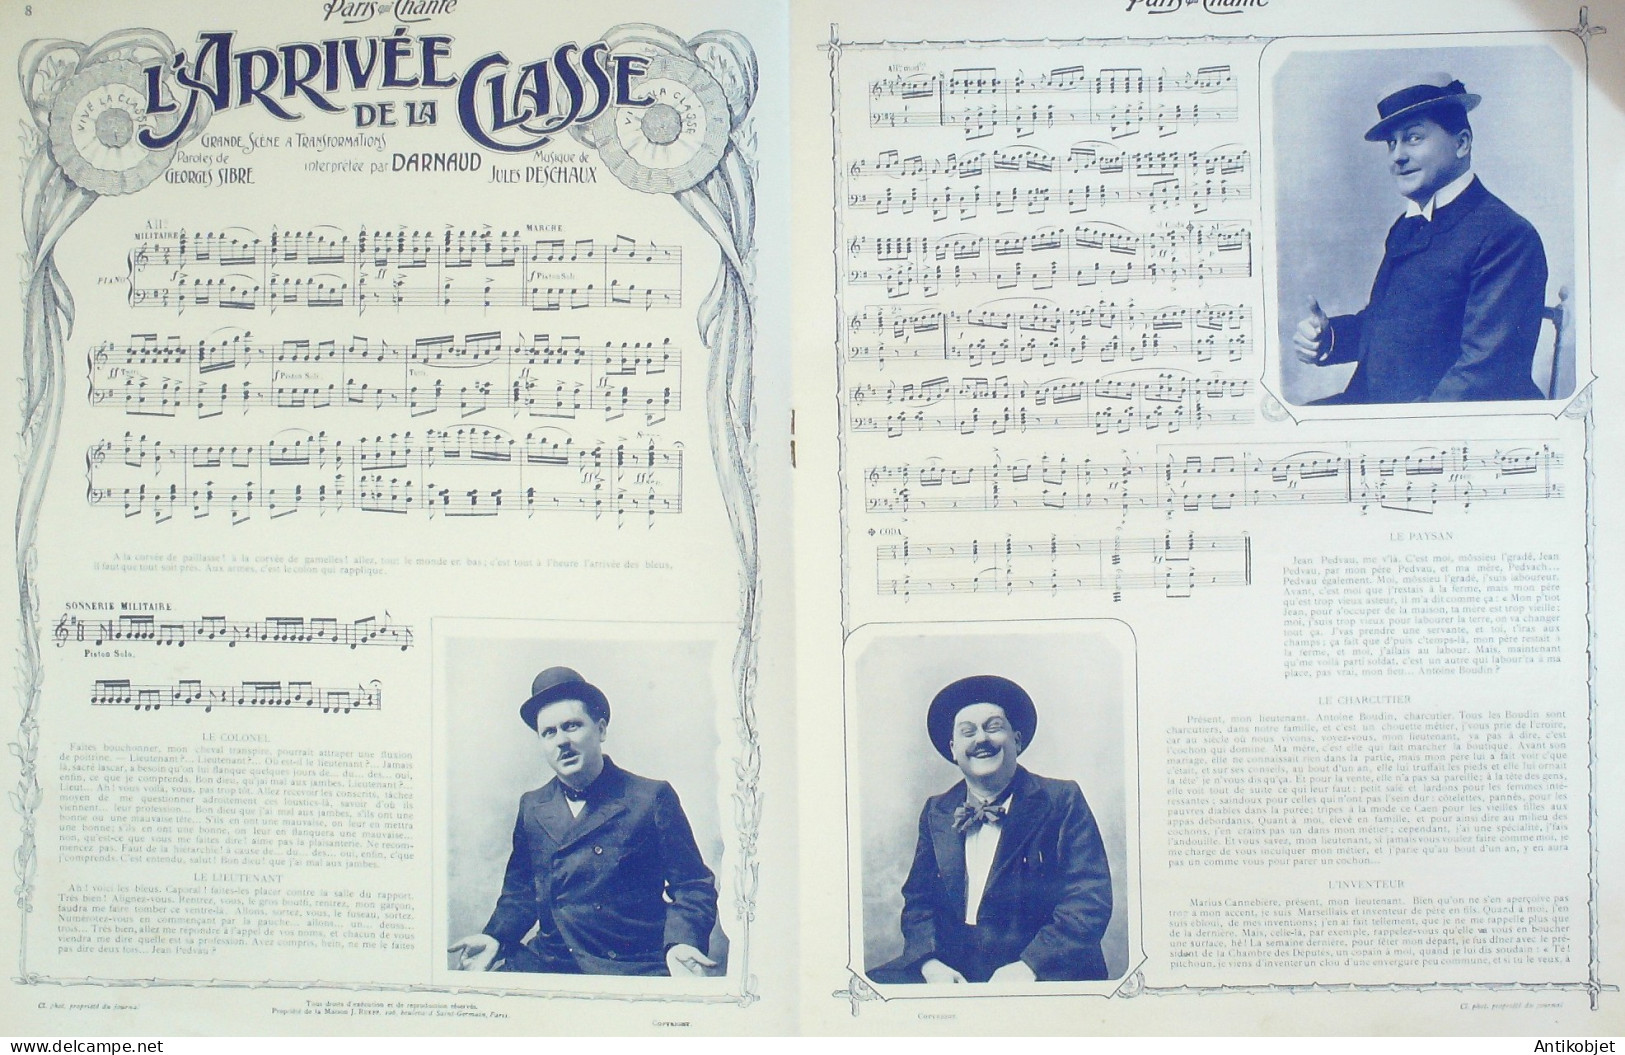 8
Paris qui Chante
L'ARRIVÉE
DE LA CLASSE
VIVE LA CLASSE
GRANDE SCÈNE A TRANSFORMATIONS
Paroles de
GEORGES SIBRE
interprétée par DARNAUD
Musique de
JULES DESCHAUX
All°
MILITAIRE
MARCHE
PIANO
Piston Solo.
Tutti
Piston Solo.
Tutti
A la corvée de paillasse! à la corvée de gamelles! allez, tout le monde en bas; c'est tout à l'heure l'arrivée des bleus,
il faut que tout soit prés. Aux armes, c'est le colon qui rapplique.
SONNERIE MILITAIRE
Piston Solo.
LE COLONEL
Faites bouchonner, mon cheval transpire, pourrait attraper une fluxion
de poitrine. — Lieutenant?... Lieutenant?... Où est-il le lieutenant?... Jamais
là, sacré lascar, a besoin qu'on lui flanque quelques jours de... du... des... oui,
enfin, ce que je comprends. Bon dieu, qu'jai mal aux jambes. Lieutenant?...
Lieut... Ah! vous voilà, vous, pas trop tôt. Allez recevoir les conscrits, tâchez
moyen de me questionner adroitement ces loustics-là, savoir d'où ils
viennent... leur profession... Bon dieu que j'ai mal aux jambes, s'ils ont une
bonne ou une mauvaise tête... S'ils en ont une mauvaise, on leur en mettra
une bonne; s'ils en ont une bonne, on leur en flanquera une mauvaise...
non, qu'est-ce que vous me faites dire! aime pas la plaisanterie. Ne recom-
mencez pas. Faut de la hiérarchie! à cause de... du... des... oui, enfin, c'que
j'comprends. C'est entendu, salut! Bon dieu! que j'ai mal aux jambes.
LE LIEUTENANT
Ah! voici les bleus. Caporal! faites-les placer contre la salle du rapport.
Très bien! Alignez-vous. Rentrez, vous, le gros bouffi, rentrez, mon garçon,
faudra me faire tomber ce ventre-là. Allons, sortez, vous, le fuseau, sortez.
Numérotez-vous en commençant par la gauche... allons... un... deuss...
trois... Très bien, allez me répondre à l'appel de vos noms, et chacun de vous
viendra me dire quelle est sa profession. Avez compris, hein, ne me le faites
pas dire deux fois... Jean Pedvau?
Cl. phot. propriété du journal
Tous droits d'exécution et de reproduction réservés.
Propriété de la Maison J. RUEFF, boulevard Saint-Germain, Paris.
COPYRIGHT.
Paris qui Chante
All° modto
CODA
LE PAYSAN
Jean Pedvau, me v'là. C'est moi, môssieu l'gradé, Jean
Pedvau, par mon père Pedvau, et ma mère, Pedvach...
Pedvau également. Moi, môssieu l'gradé, j'suis laboureur.
Avant, c'est moi que j'restais à la ferme, mais mon père
qu'est trop vieux asteur, il m'a dit comme ça: « Mon p'tiot
Jean, pour s'occuper de la maison, ta mère est trop vieille;
moi, j'suis trop vieux pour labourer la terre, on va changer
tout ça. J'vas prendre une servante, et toi, t'iras aux
champs; ça fait que d'puis c'temps-là, mon père restait à
la ferme, et moi, j'allais au labour. Mais, maintenant
qu'me voilà parti soldat, c'est un autre qui labour'ra à ma
place, pas vrai, mon lieu... Antoine Boudin?
LE CHARCUTIER
Présent, mon lieutenant. Antoine Boudin, charcutier. Tous les Boudin sont
charcutiers, dans notre famille, et c'est un chouette métier, j'vous prie de l'croire,
car au siècle où nous vivons, voyez-vous, mon lieutenant, va pas à dire, c'est
l'cochon qui domine. Ma mère, c'est elle qui fait marcher la boutique. Avant son
mariage, elle ne connaissait rien dans la partie, mais mon père lui a fait voir c'que
c'était, et sur ses conseils, au bout d'un an, elle lui truffait les pieds et elle lui ornait
la tête je n'vous dis qu'ça. Et pour la vente, elle n'a pas sa pareille; à la tête des gens,
elle voit tout de suite ce qui leur faut: petit salé et lardons pour les femmes inté-
ressantes; saindoux pour celles qui n'ont pas l'sein dur; côtelettes, pannés, pour les
pauvres diables dans la purée; tripes à la mode ce Caen pour les vieilles filles aux
appas débordants. Quant à moi, élevé en famille, et pour ainsi dire au milieu des
cochons, j'en crains pas un dans mon métier; cependant, j'ai une spécialité, j'fais
l'andouille. Et vous savez, mon lieutenant, si jamais vous voulez faire comme moi, je
me charge de vous inculquer mon métier, et j'parie qu'au bout d'un an, y en aura
pas un comme vous pour parer un cochon...
L'INVENTEUR
Marius Cannebière, présent, mon lieutenant. Bien qu'on ne s'en aperçoive pas
trop à mon accent, je suis Marseillais et inventeur de père en fils. Quand à moi, j'en
suis ébloui, de mes inventions; j'en ai fait tellement, que je ne me rappelle plus que
de la dernière. Mais, celle-là, par exemple, rappelez-vous qu'elle vous en bouche
une surface, hé! La semaine dernière, pour fêter mon départ, je fus dîner avec le pré-
sident de la Chambre des Députés, un copain à moi, quand je lui dis soudain: « Té!
pitchoun, je viens d'inventer un clou d'une envergure peu commune, et si tu le veux, à
COPYRIGHT
Cl. phot. propriété du journal
Antikobjet